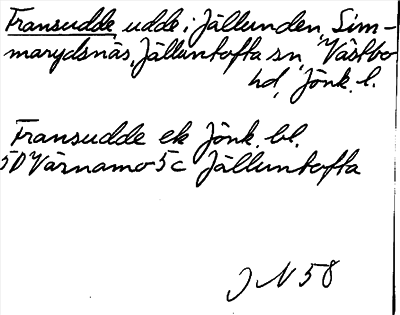 Transudde, udde i Jällunden, Sim-
marydsnäs, Jälluntofta sn, Västbo
hd, Jönk. l.
Transudde ek Jönk. bl.
5D Värnamo 5c Jälluntofta
J N 58